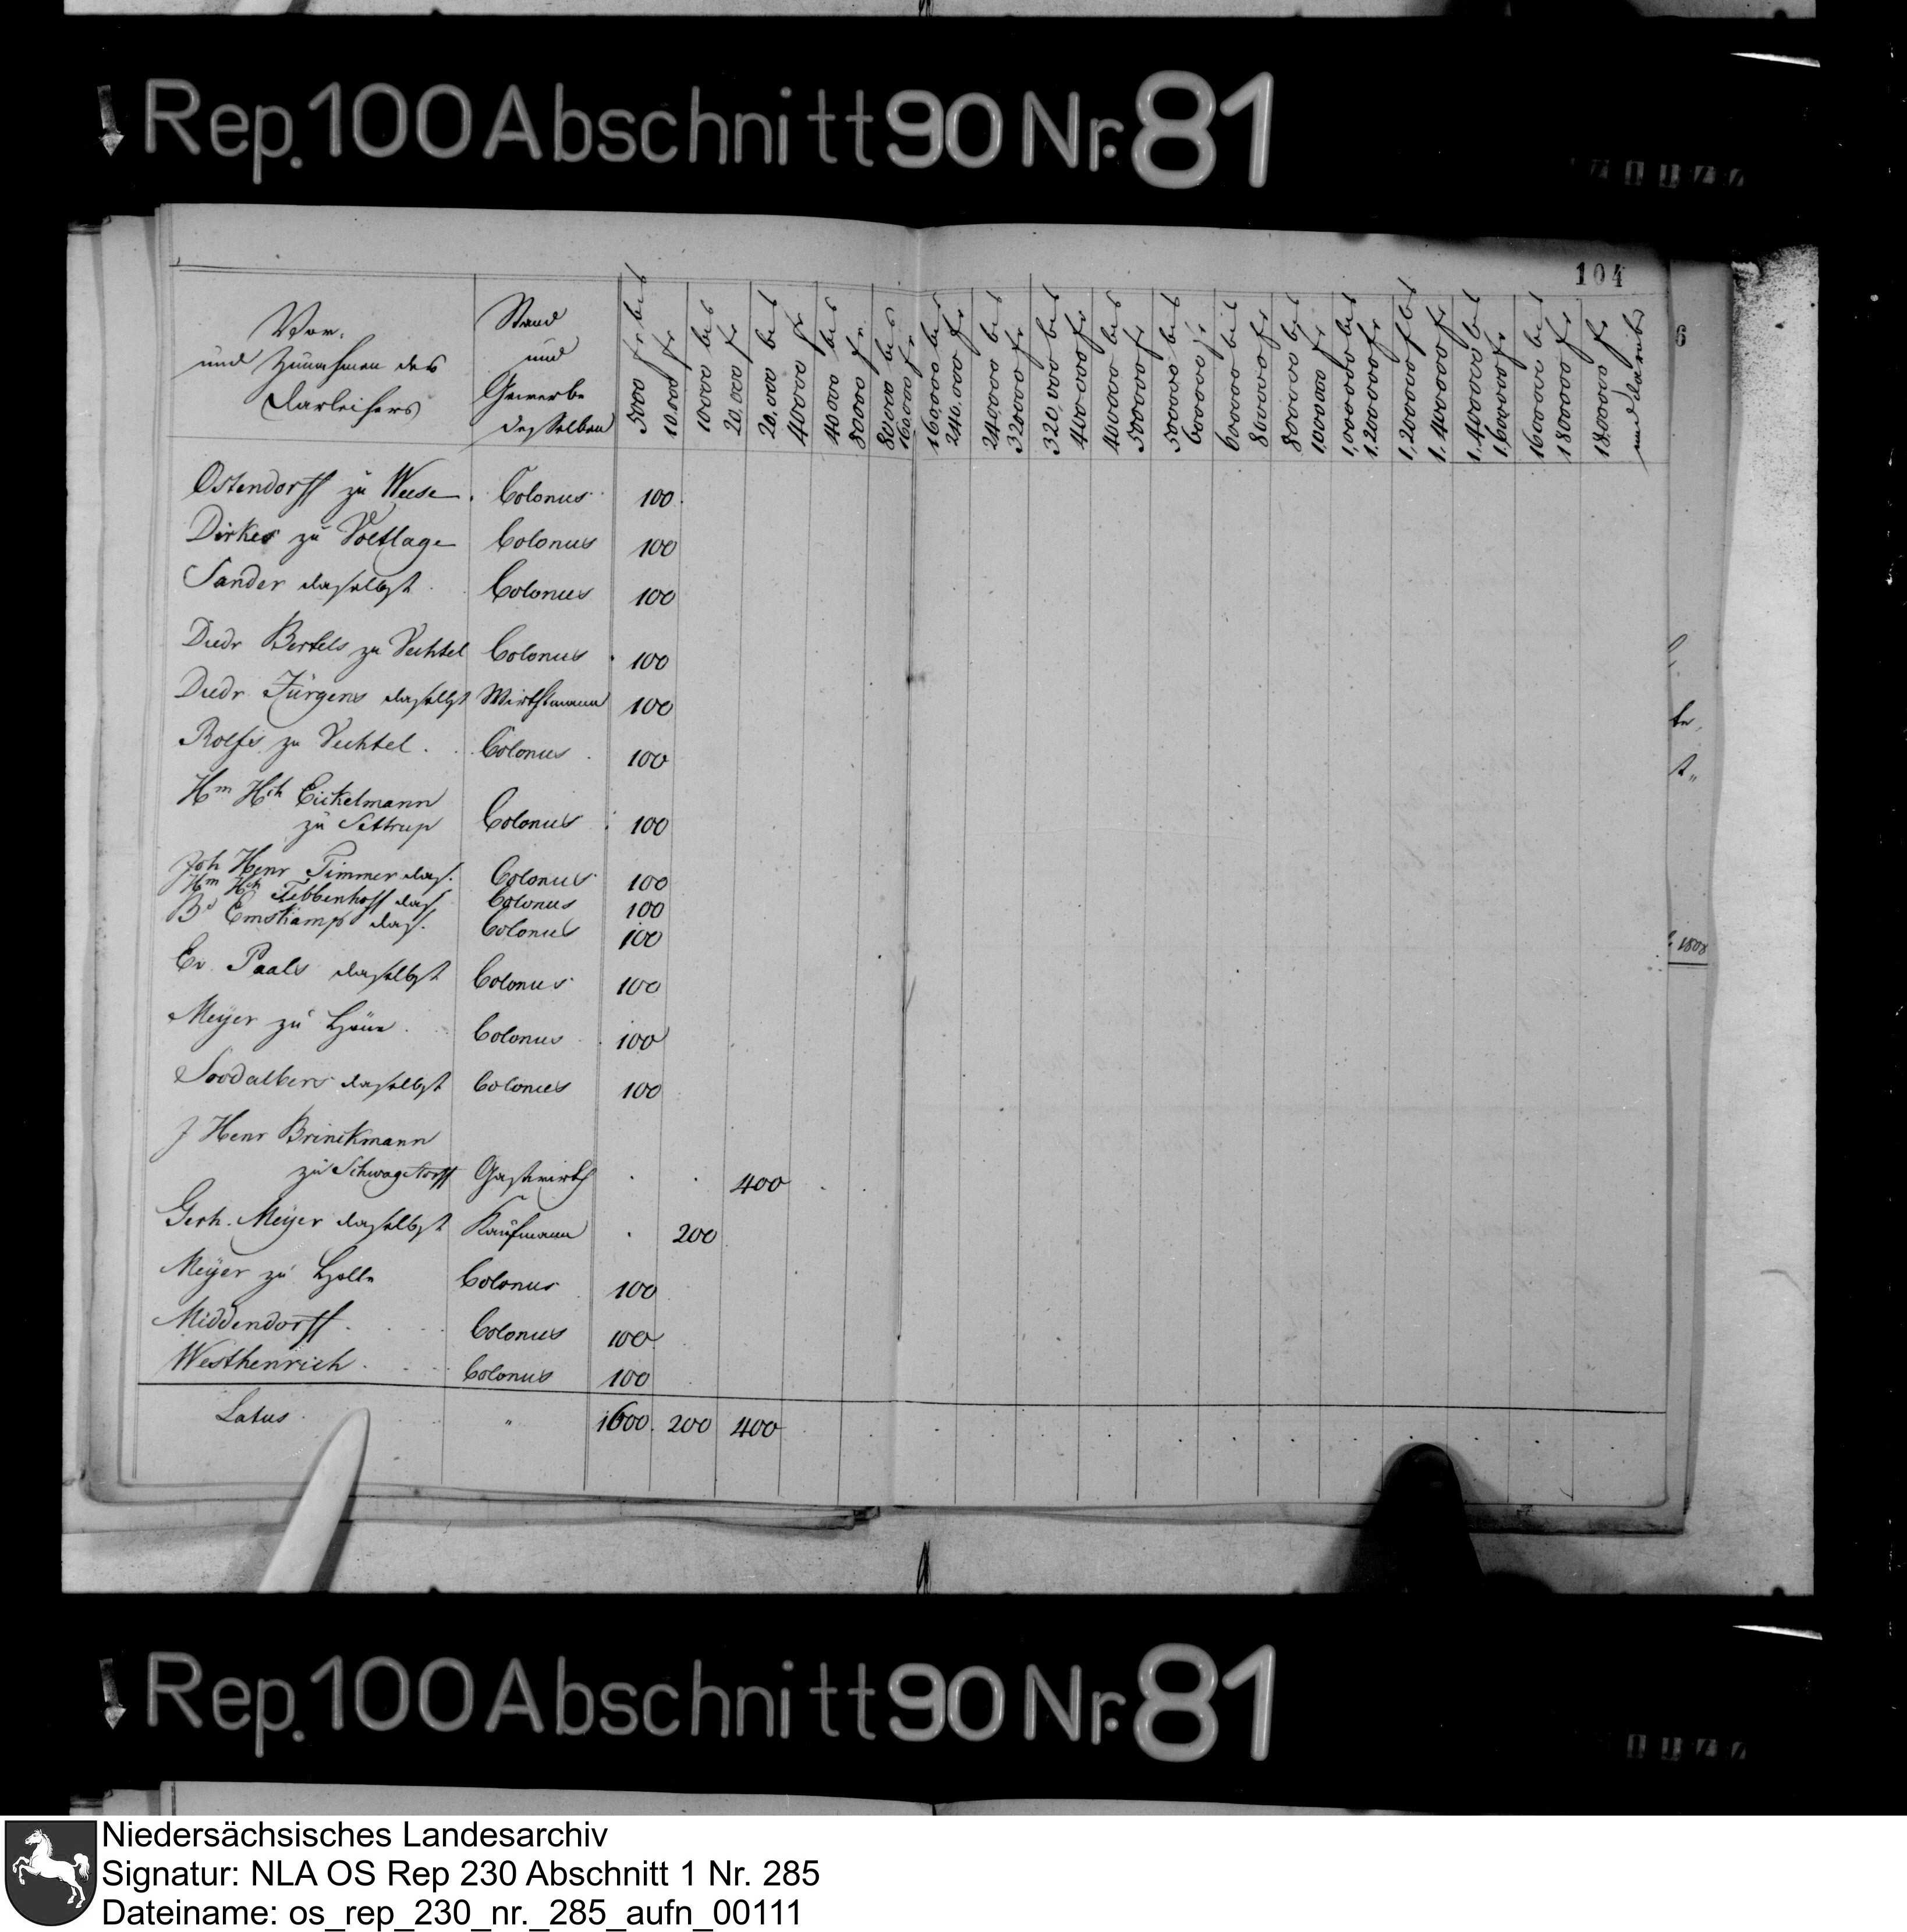 Rep. 100 Abschnitt 90 Nr. 81
104
Vor-
und Zunahmen des
Darleihers
Stand
und
Gewerbe
desselben
5000 fr bis
10.000 fr
10000 bis
20,000 fr
20.000 bis
40000 fr
40000 bis
80000 fr
80,000 bis
160,000 fr
160,000 bis
240,000 fr
240,000 bis
320000 fr
320,000 bis
400,000 fr
400000 bis
500000 fr
500000 bis
600000 fr
600000 bis
800000 fr
800000 bis
1000,000 fr
1,000000 bis
1,200000 fr
1,200000 f bis
1,400000 fr
1,400000 bis
1,600000 fr
1600000 bis
1800000 fr
1800000 fr
und darüber
6
Ostendorff zu Weese. Colonus 100.
Dirkes zu Voltlage Colonus 100
Sander daselbst Colonus 100
Diedr Bertels zu Vechtel Colonus 100
Diedr Jürgens daselbst Wirthsmann 100
Rolfes zu Vechtel. Colonus 100
Hm Hch Eickelmann
zu Settrup Colonus 100
Joh Henr Timmer das. Colonus 100
Hm Hch Tebbenhoff das Colonus 100
Bd Emskamp das. Colonus 100
Ev. Paals daselbst Colonus 100
Meyer zu Colonus 100
Soodalbers daselbst Colonus 100
J Henr Brinckmann
zu Schwagstorff Gastwirth 400
Gerh. Meyer daselbst Kaufmann 200
Meyer zu Holle Colonus 100
Middendorff. Colonus 100
Westhenrich. Colonus 100
Latus " 1600. 200 400
1808
Rep. 100 Abschnitt 90 Nr. 81
Niedersächsisches Landesarchiv
Signatur: NLA OS Rep 230 Abschnitt 1 Nr. 285
Dateiname: os_rep_230_nr._285_aufn_00111